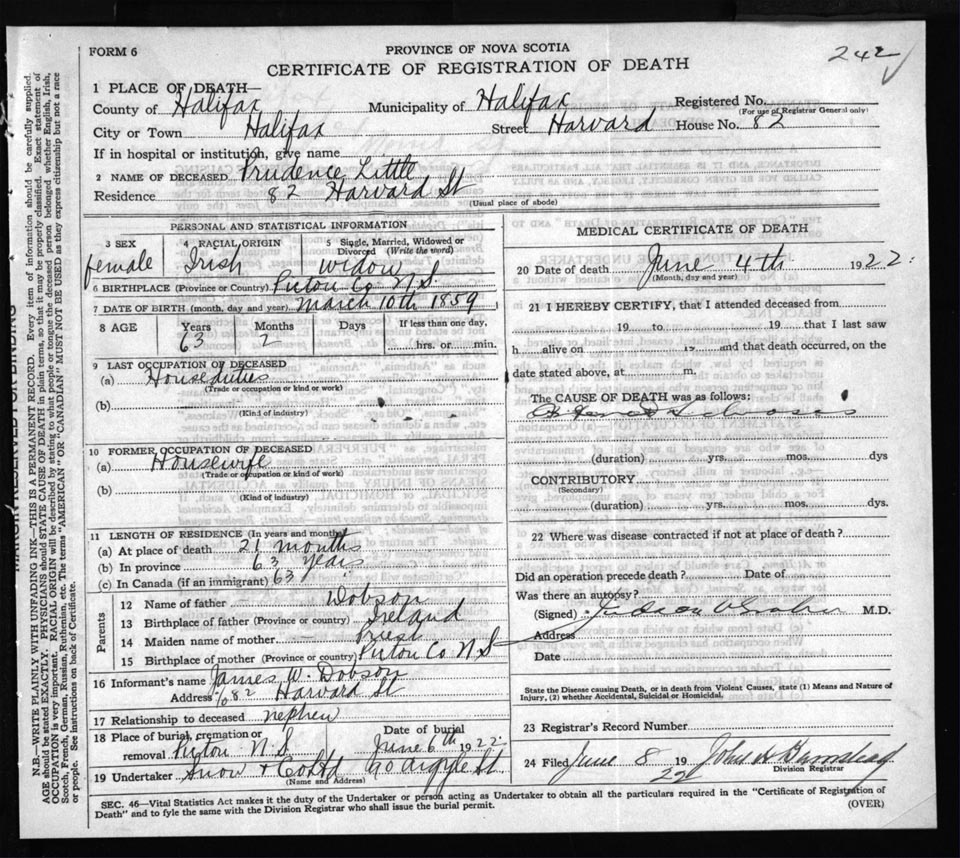 FORM 6
PROVINCE OF NOVA SCOTIA
242
CERTIFICATE OF REGISTRATION OF DEATH
1 PLACE OF DEATH—
County of Halifax Municipality of Halifax Registered No.
(For use of Registrar General only)
City or Town Halifax Street Harvard House No. 82
If in hospital or institution, give name
2 NAME OF DECEASED Prudence Little
Residence 82 Harvard St
(Usual place of abode)
PERSONAL AND STATISTICAL INFORMATION
3 SEX 4 RACIAL ORIGIN 5 Single, Married, Widowed or Divorced (Write the word)
female Irish widow
6 BIRTHPLACE (Province or Country) Pictou Co N.S.
7 DATE OF BIRTH (month, day and year) March 10th 1859
8 AGE Years Months Days If less than one day,
63 2 hrs. or min.
9 LAST OCCUPATION OF DECEASED
(a) House duties
(Trade or occupation or kind or work)
(b)
(Kind of industry)
10 FORMER OCCUPATION OF DECEASED
(a) Housewife
(Trade or occupation or kind of work)
(b)
(Kind of industry)
11 LENGTH OF RESIDENCE (In years and months)
(a) At place of death 21 months
(b) In province 63 years
(c) In Canada (if an immigrant) 63
Parents
12 Name of father Dobson
13 Birthplace of father (Province or country) Ireland
14 Maiden name of mother Priest
15 Birthplace of mother (Province or country) Pictou Co N.S
16 Informant's name James W. Dobson
Address 82 Harvard St
17 Relationship to deceased nephew
18 Place of burial, cremation or removal Pictou N.S Date of burial June 6th 1922
19 Undertaker Snow & Co Ltd 90 Argyle St.
(Name and Address)
MEDICAL CERTIFICATE OF DEATH
20 Date of death June 4th 1922.
(Month, day and year)
21 I HEREBY CERTIFY, that I attended deceased from
19 to 19 that I last saw
h alive on 19 and that death occurred, on the
date stated above, at m.
The CAUSE OF DEATH was as follows:
(duration) yrs. mos. dys
CONTRIBUTORY
(Secondary)
(duration) yrs. mos. dys.
22 Where was disease contracted if not at place of death?
Did an operation precede death? Date of
Was there an autopsy?
(Signed) M.D.
Address
Date
State the Disease causing Death, or in death from Violent Causes, state (1) Means and Nature of
Injury, (2) whether Accidental, Suicidal or Homicidal.
23 Registrar's Record Number
24 Filed June 8 1922 John H
Division Registrar
SEC. 46—Vital Statistics Act makes it the duty of the Undertaker or person acting as Undertaker to obtain all the particulars required in the "Certificate of Registration of
Death" and to fyle the same with the Division Registrar who shall issue the burial permit.
(OVER)
MARGIN RESERVED FOR BINDING
N.B.—WRITE PLAINLY WITH UNFADING INK—THIS IS A PERMANENT RECORD. Every item of information should be carefully supplied.
AGE should be stated EXACTLY. PHYSICIANS should STATE CAUSE OF DEATH in plain terms, so that it may be properly classified. Exact statement of
OCCUPATION is very important. RACIAL ORIGIN will be described by stating to what people or tongue the deceased person belonged whether English, Irish,
Scotch, French, German, Russian, Ruthenian, etc. The terms "AMERICAN" OR "CANADIAN" MUST NOT BE USED as they express citizenship but not a race
or people. See instructions on back of Certificate.